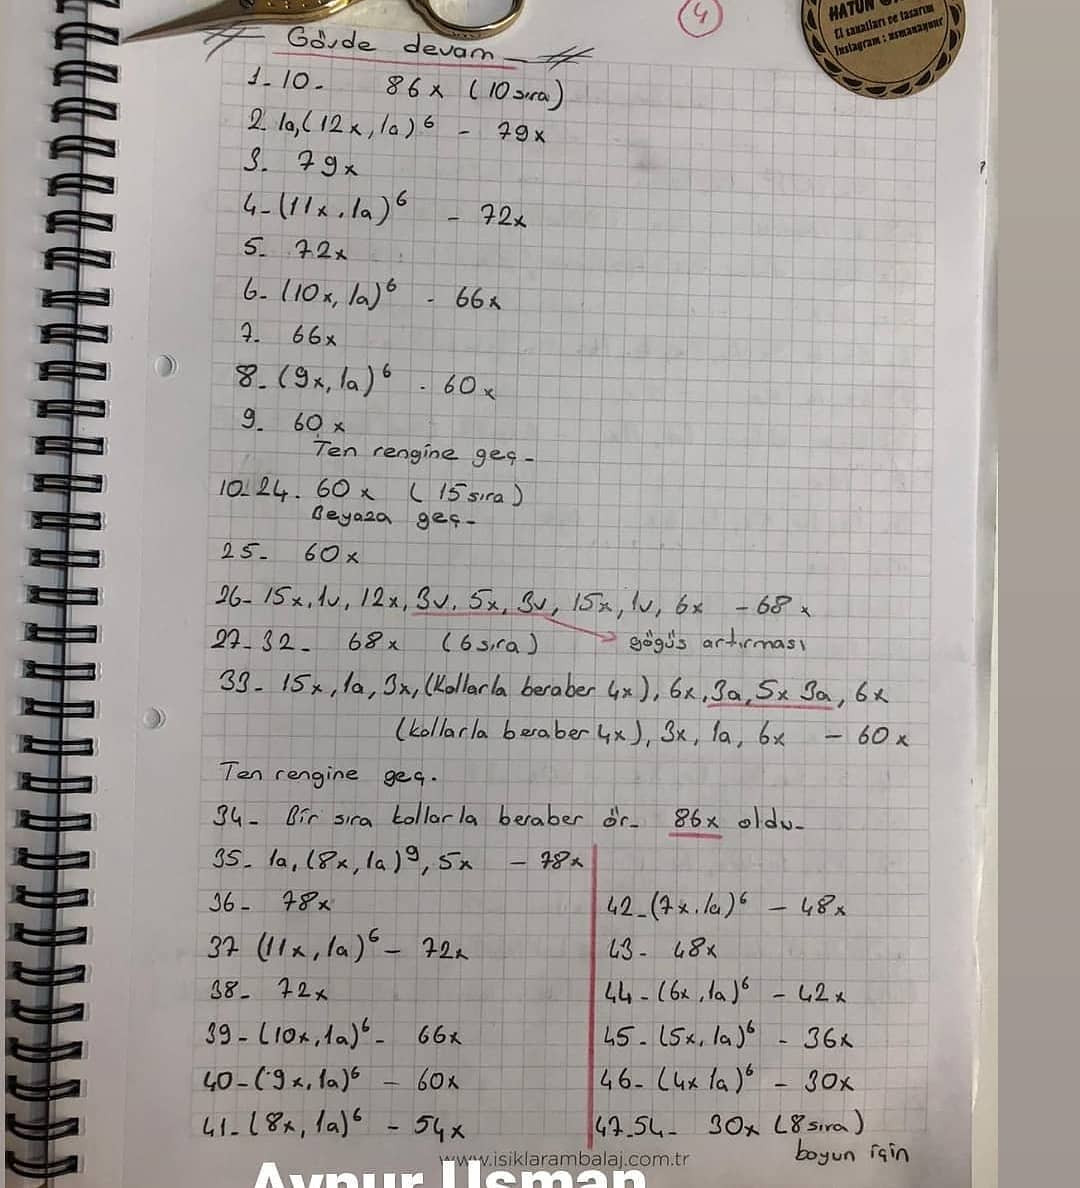 4
HATUN
El sanatları ve tasarım
Instagram: usmanaynur
Gövde devam
1-10- 86x (10 sıra)
2. 1a, (12x, 1a)⁶ - 79x
3. 79x
4- (11x, 1a)⁶ - 72x
5. 72x
6- (10x, 1a)⁶ - 66x
7. 66x
8- (9x, 1a)⁶ - 60x
9. 60x
Ten rengine geç-
10-24. 60x (15 sıra)
Beyaza geç-
25- 60x
26- 15x, 1v, 12x, 3v, 5x, 3v, 15x, 1v, 6x - 68x
27-32- 68x (6 sıra) göğüs artırması
33- 15x, 1a, 3x, (Kollarla beraber 4x), 6x, 3a, 5x 3a, 6x
(kollarla beraber 4x), 3x, 1a, 6x - 60x
Ten rengine geç.
34- Bir sıra kollarla beraber ör- 86x oldu-
35- 1a, (8x, 1a)⁹, 5x - 78x
36- 78x
37 (11x, 1a)⁶ - 72x
38- 72x
39- (10x, 1a)⁶ - 66x
40- (9x, 1a)⁶ - 60x
41- (8x, 1a)⁶ - 54x
42- (7x, 1a)⁶ - 48x
43- 48x
44- (6x, 1a)⁶ - 42x
45- (5x, 1a)⁶ - 36x
46- (4x 1a)⁶ - 30x
47-54- 30x (8 sıra)
boyun için
www.isiklarambalaj.com.tr
Aynur Usman